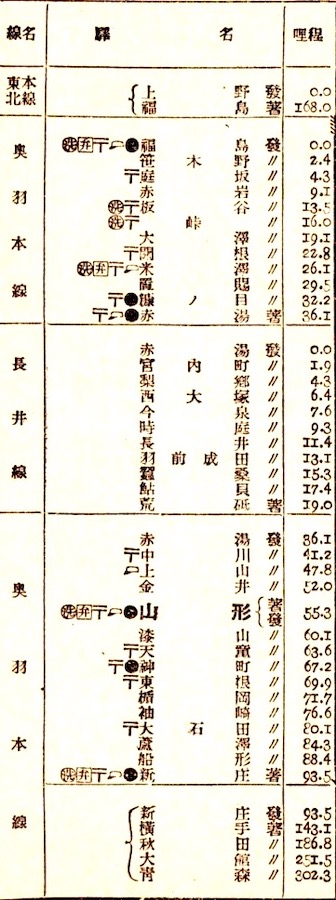 線名 驛名 哩程
東北本線
上野 發 0.0
福島 著 168.0
奥羽本線
洗 弁 〒 福島 發 0.0
笹木野 〃 2.4
〒 庭坂 〃 4.3
赤岩 〃 9.1
洗 〒 板谷 〃 13.5
洗 〒 峠 〃 16.0
大澤 〃 19.1
〒 關根 〃 22.8
洗 弁 〒 米澤 〃 26.1
置賜 〃 29.5
〒 糠ノ目 〃 32.2
〒 赤湯 著 36.1
長井線
赤湯 發 0.0
宮內町 〃 1.9
梨郷 〃 4.3
西大塚 〃 6.4
今泉 〃 7.6
時庭 〃 9.3
長井 〃 11.4
羽前成田 〃 13.1
蠶桑 〃 15.3
鮎貝 〃 17.4
荒砥 著 19.0
奥羽本線
赤湯 發 36.1
〒 中川 〃 41.2
上山 〃 47.8
金井 〃 52.0
洗 弁 〒 山形 著發 55.3
漆山 〃 60.1
〒 天童 〃 63.6
〒 神町 〃 67.2
〒 東根 〃 69.9
楯岡 〃 71.7
袖崎 〃 76.6
〒 大石田 〃 80.1
蘆澤 〃 84.3
船形 〃 88.4
洗 弁 〒 新庄 著 93.5
新庄 發 93.5
橫手 著 143.1
秋田 〃 186.8
大館 〃 251.5
靑森 〃 302.3